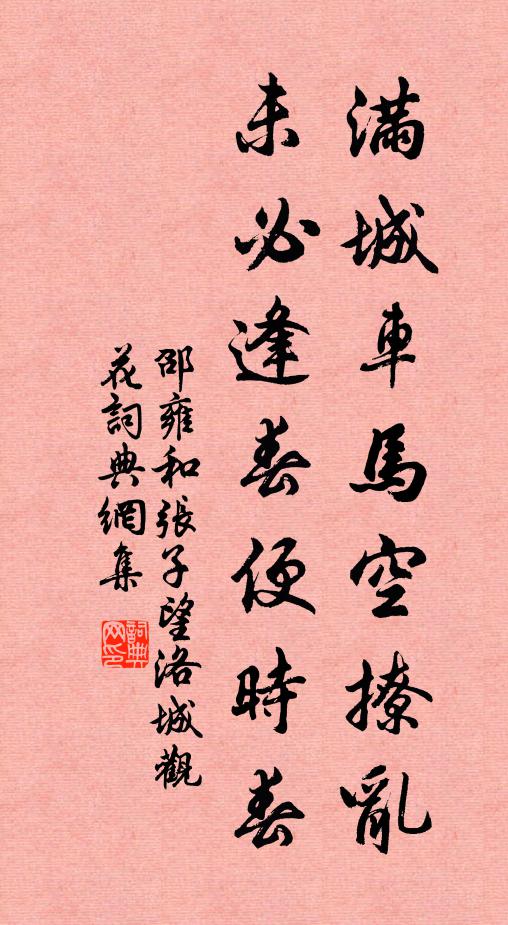 滿城車馬空撩亂
未必逢春便時春
邵雍和張子望洛城觀
花詞典網集
詞典网印